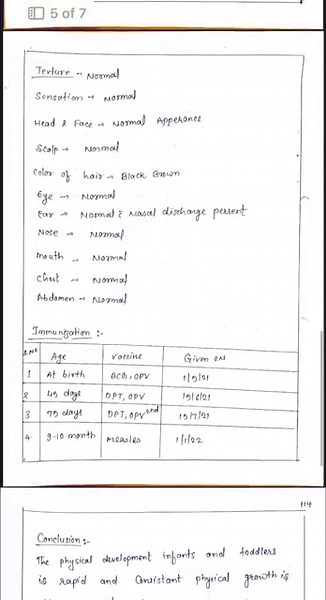 5 of 7
Texture → Normal
Sensation → Normal
Head & Face → Normal Apperance
Scalp → Normal
Color of hair → Black Brown
Eye → Normal
Ear → Normal & Nasal discharge persent
Nose → Normal
Mouth → Normal
Chest → Normal
Abdomen → Normal
Immunization :-
S.No Age Vaccine Given on
1 At birth BCG, OPV 1/5/21
2 45 days DPT, OPV 15/6/21
3 75 days DPT, OPV 2nd 15/7/21
4 9-10 month Measles 1/1/22
114
Conclusion :-
The physical development infants and toddlers
is rapid and Consistant phyical growth is